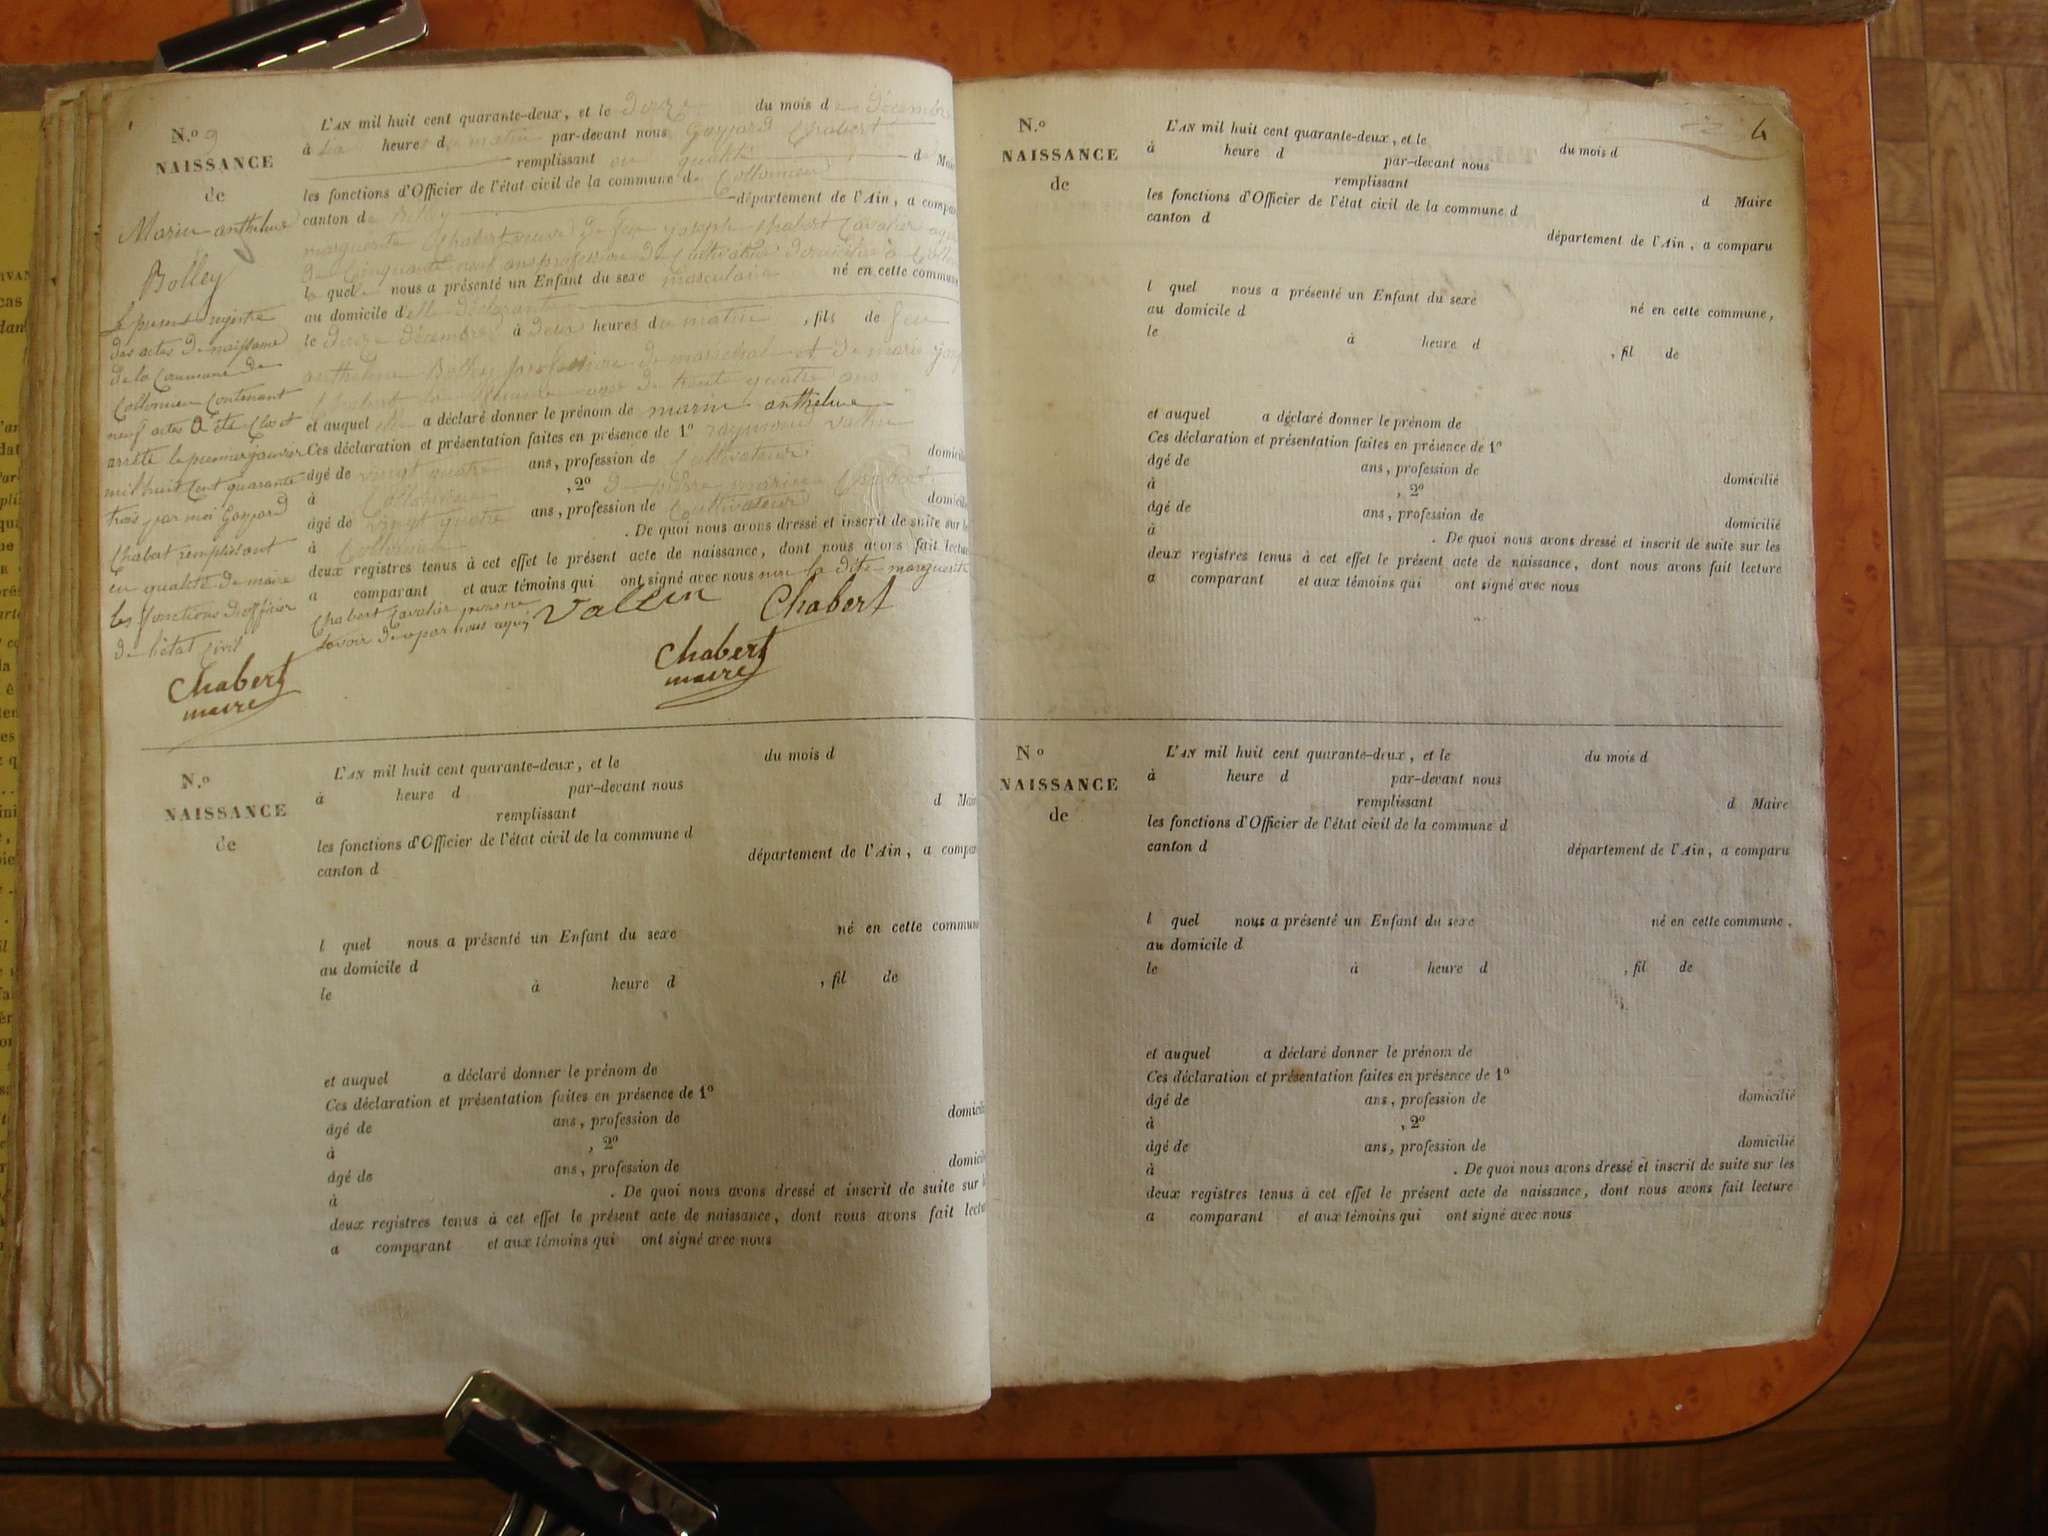 N.º 9
NAISSANCE
de
Marin anthelme
Bolley
Le present registre
des actes de naissance
de la Commune de
Collomieu Contenant
neuf actes a été Clos et
arrêté le premier janvier
mil huit Cent quarante
trois par moi Gaspard
Chabert remplissant
en qualité de maire
les fonctions d'officier
de l'état Civil
Chabert
maire
L'AN mil huit cent quarante-deux, et le douze du mois de décembre
à heure du matin par-devant nous Gaspard Chabert
remplissant en qualité de Mai
les fonctions d'Officier de l'état civil de la commune de Collomieu
canton de Belley département de l'Ain, a compar
marguerite Chabert veuve de feu joseph Chabert Cavalier agée
de Cinquante neuf ans profession de Cultivatrice domiciliée à Collo
la quelle nous a présenté un Enfant du sexe masculin né en cette commune
au domicile d'elle déclarante
le douze décembre à deux heures du matin, fils de feu
anthelme Bolley profession de marechal et de marie
Chabert agée de trente quatre ans
et auquel elle a déclaré donner le prénom de marin anthelme
Ces déclaration et présentation faites en présence de 1º raymond Vallin
âgé de vingt quatre ans, profession de Cultivateur domicilié
à Collomieu, 2º de pierre marin Chabert
âgé de vingt quatre ans, profession de Cultivateur domicilié
à Collomieu . De quoi nous avons dressé et inscrit de suite sur le
deux registres tenus à cet effet le présent acte de naissance, dont nous avons fait lecture
a comparant et aux témoins qui ont signé avec nous non la dite marguerite
Chabert Cavalier pour ne
savoir de ce par nous requis
Vallin Chabert
Chabert
maire
N.º
NAISSANCE
de
L'AN mil huit cent quarante-deux, et le du mois d
à heure d par-devant nous
remplissant d Mai
les fonctions d'Officier de l'état civil de la commune d
canton d département de l'Ain, a compar
l quel nous a présenté un Enfant du sexe né en cette commune
au domicile d
le à heure d , fil de
et auquel a déclaré donner le prénom de
Ces déclaration et présentation faites en présence de 1º
âgé de ans, profession de domicilié
à , 2º
âgé de ans, profession de domicilié
à . De quoi nous avons dressé et inscrit de suite sur le
deux registres tenus à cet effet le présent acte de naissance, dont nous avons fait lectur
a comparant et aux témoins qui ont signé avec nous
4
N.º
NAISSANCE
de
L'AN mil huit cent quarante-deux, et le du mois d
à heure d par-devant nous
remplissant d Maire
les fonctions d'Officier de l'état civil de la commune d
canton d département de l'Ain, a comparu
l quel nous a présenté un Enfant du sexe né en cette commune,
au domicile d
le à heure d , fil de
et auquel a déclaré donner le prénom de
Ces déclaration et présentation faites en présence de 1º
âgé de ans, profession de domicilié
à , 2º
âgé de ans, profession de domicilié
à . De quoi nous avons dressé et inscrit de suite sur les
deux registres tenus à cet effet le présent acte de naissance, dont nous avons fait lecture
a comparant et aux témoins qui ont signé avec nous
N.º
NAISSANCE
de
L'AN mil huit cent quarante-deux, et le du mois d
à heure d par-devant nous
remplissant d Maire
les fonctions d'Officier de l'état civil de la commune d
canton d département de l'Ain, a comparu
l quel nous a présenté un Enfant du sexe né en cette commune,
au domicile d
le à heure d , fil de
et auquel a déclaré donner le prénom de
Ces déclaration et présentation faites en présence de 1º
âgé de ans, profession de domicilié
à , 2º
âgé de ans, profession de domicilié
à . De quoi nous avons dressé et inscrit de suite sur les
deux registres tenus à cet effet le présent acte de naissance, dont nous avons fait lecture
a comparant et aux témoins qui ont signé avec nous